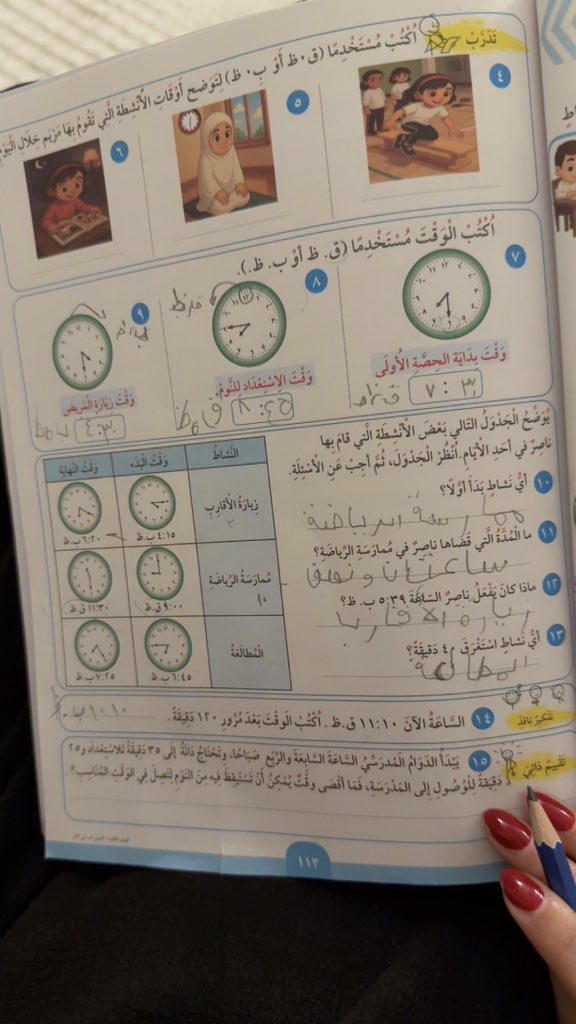 تَدَرَّبْ
أَكْتُبْ مُسْتَخْدِمًا (ق. ظ أَوْ ب. ظ) لِتَوْضِحَ أَوْقَاتِ الأَنْشِطَةِ الَّتِي تَقُومُ بِهَا مَرْيَم خِلَالَ الْيَوْمِ
٤
٥
٦
أَكْتُبْ الْوَقْتَ مُسْتَخْدِمًا (ق. ظ أَوْ ب. ظ.).
٧
٨
٩
وَقْتَ بِدَايَةَ الحِصَّةِ الأُولَى
وَقْتَ الاِسْتِعْدَادِ لِلنَّوْمِ
وَقْتَ زِيَارَةِ الْمَرِيضِ
٧ : ٣٠
يُوَضِّحُ الْجَدْوَلُ التَّالِي بَعْضَ الْأَنْشِطَةِ الَّتِي قَامَ بِهَا
نَاصِرٌ فِي أَحَدِ الْأَيَّامِ. أَنْظُرُ الْجَدْوَلَ، ثُمَّ أُجِبْ عَنِ الْأَسْئِلَةِ.
١٠ أَيُّ نَشَاطٍ بَدَأَ أَوَّلًا؟
ممارسة الرياضة
١١ مَا الْمُدَّةُ الَّتِي قَضَاهَا نَاصِرٌ فِي مُمَارَسَةِ الرِّيَاضَةِ؟
ساعتان ونصف
١٢ مَاذَا كَانَ يَفْعَلُ نَاصِرٌ السَّاعَةَ ٥:٣٩ ب.ظ؟
زيارة الاقارب
١٣ أَيُّ نَشَاطٍ اسْتَغْرَقَ ٤٠ دَقِيقَةً؟
المطالعة
النَّشَاطُ وَقْتُ الْبَدْءِ وَقْتُ النِّهَايَةِ
زِيَارَةُ الْأَقَارِبِ ٤:١٥ ب.ظ ٦:٢٠ ب.ظ
مُمَارَسَةُ الرِّيَاضَةِ ٩:٠٠ ق.ظ ١١:٣٠ ق.ظ
الْمُطَالَعَةُ ٦:٤٥ ب.ظ ٧:٢٥ ب.ظ
تَفْكِيرٌ نَاقِدٌ
١٤ السَّاعَةُ الْآنَ ١١:١٠ ق.ظ. أَكْتُبُ الْوَقْتَ بَعْدَ مُرُورِ ١٢٠ دَقِيقَةً.
تَقْيِيمٌ ذَاتِيّ
١٥ يَبْدَأُ الدَّوَامُ الْمَدْرَسِيُّ السَّاعَةَ السَّابِعَةَ وَالرُّبْعَ صَبَاحًا، وَتَحْتَاجُ دَانَةُ إِلَى ٣٥ دَقِيقَةً لِلِاسْتِعْدَادِ وَ٢٥
دَقِيقَةً لِلْوُصُولِ إِلَى الْمَدْرَسَةِ، فَمَا أَقْصَى وَقْتٌ يُمْكِنُ أَنْ تَسْتَيْقِظَ فِيهِ مِنَ النَّوْمِ لِتَصِلَ فِي الْوَقْتِ الْمُنَاسِبِ؟
١١٣